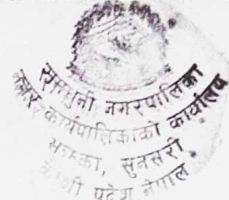 रामधुनी नगरपालिका
नगर कार्यपालिकाको कार्यालय
सुनसरी
कोशी प्रदेश नेपाल